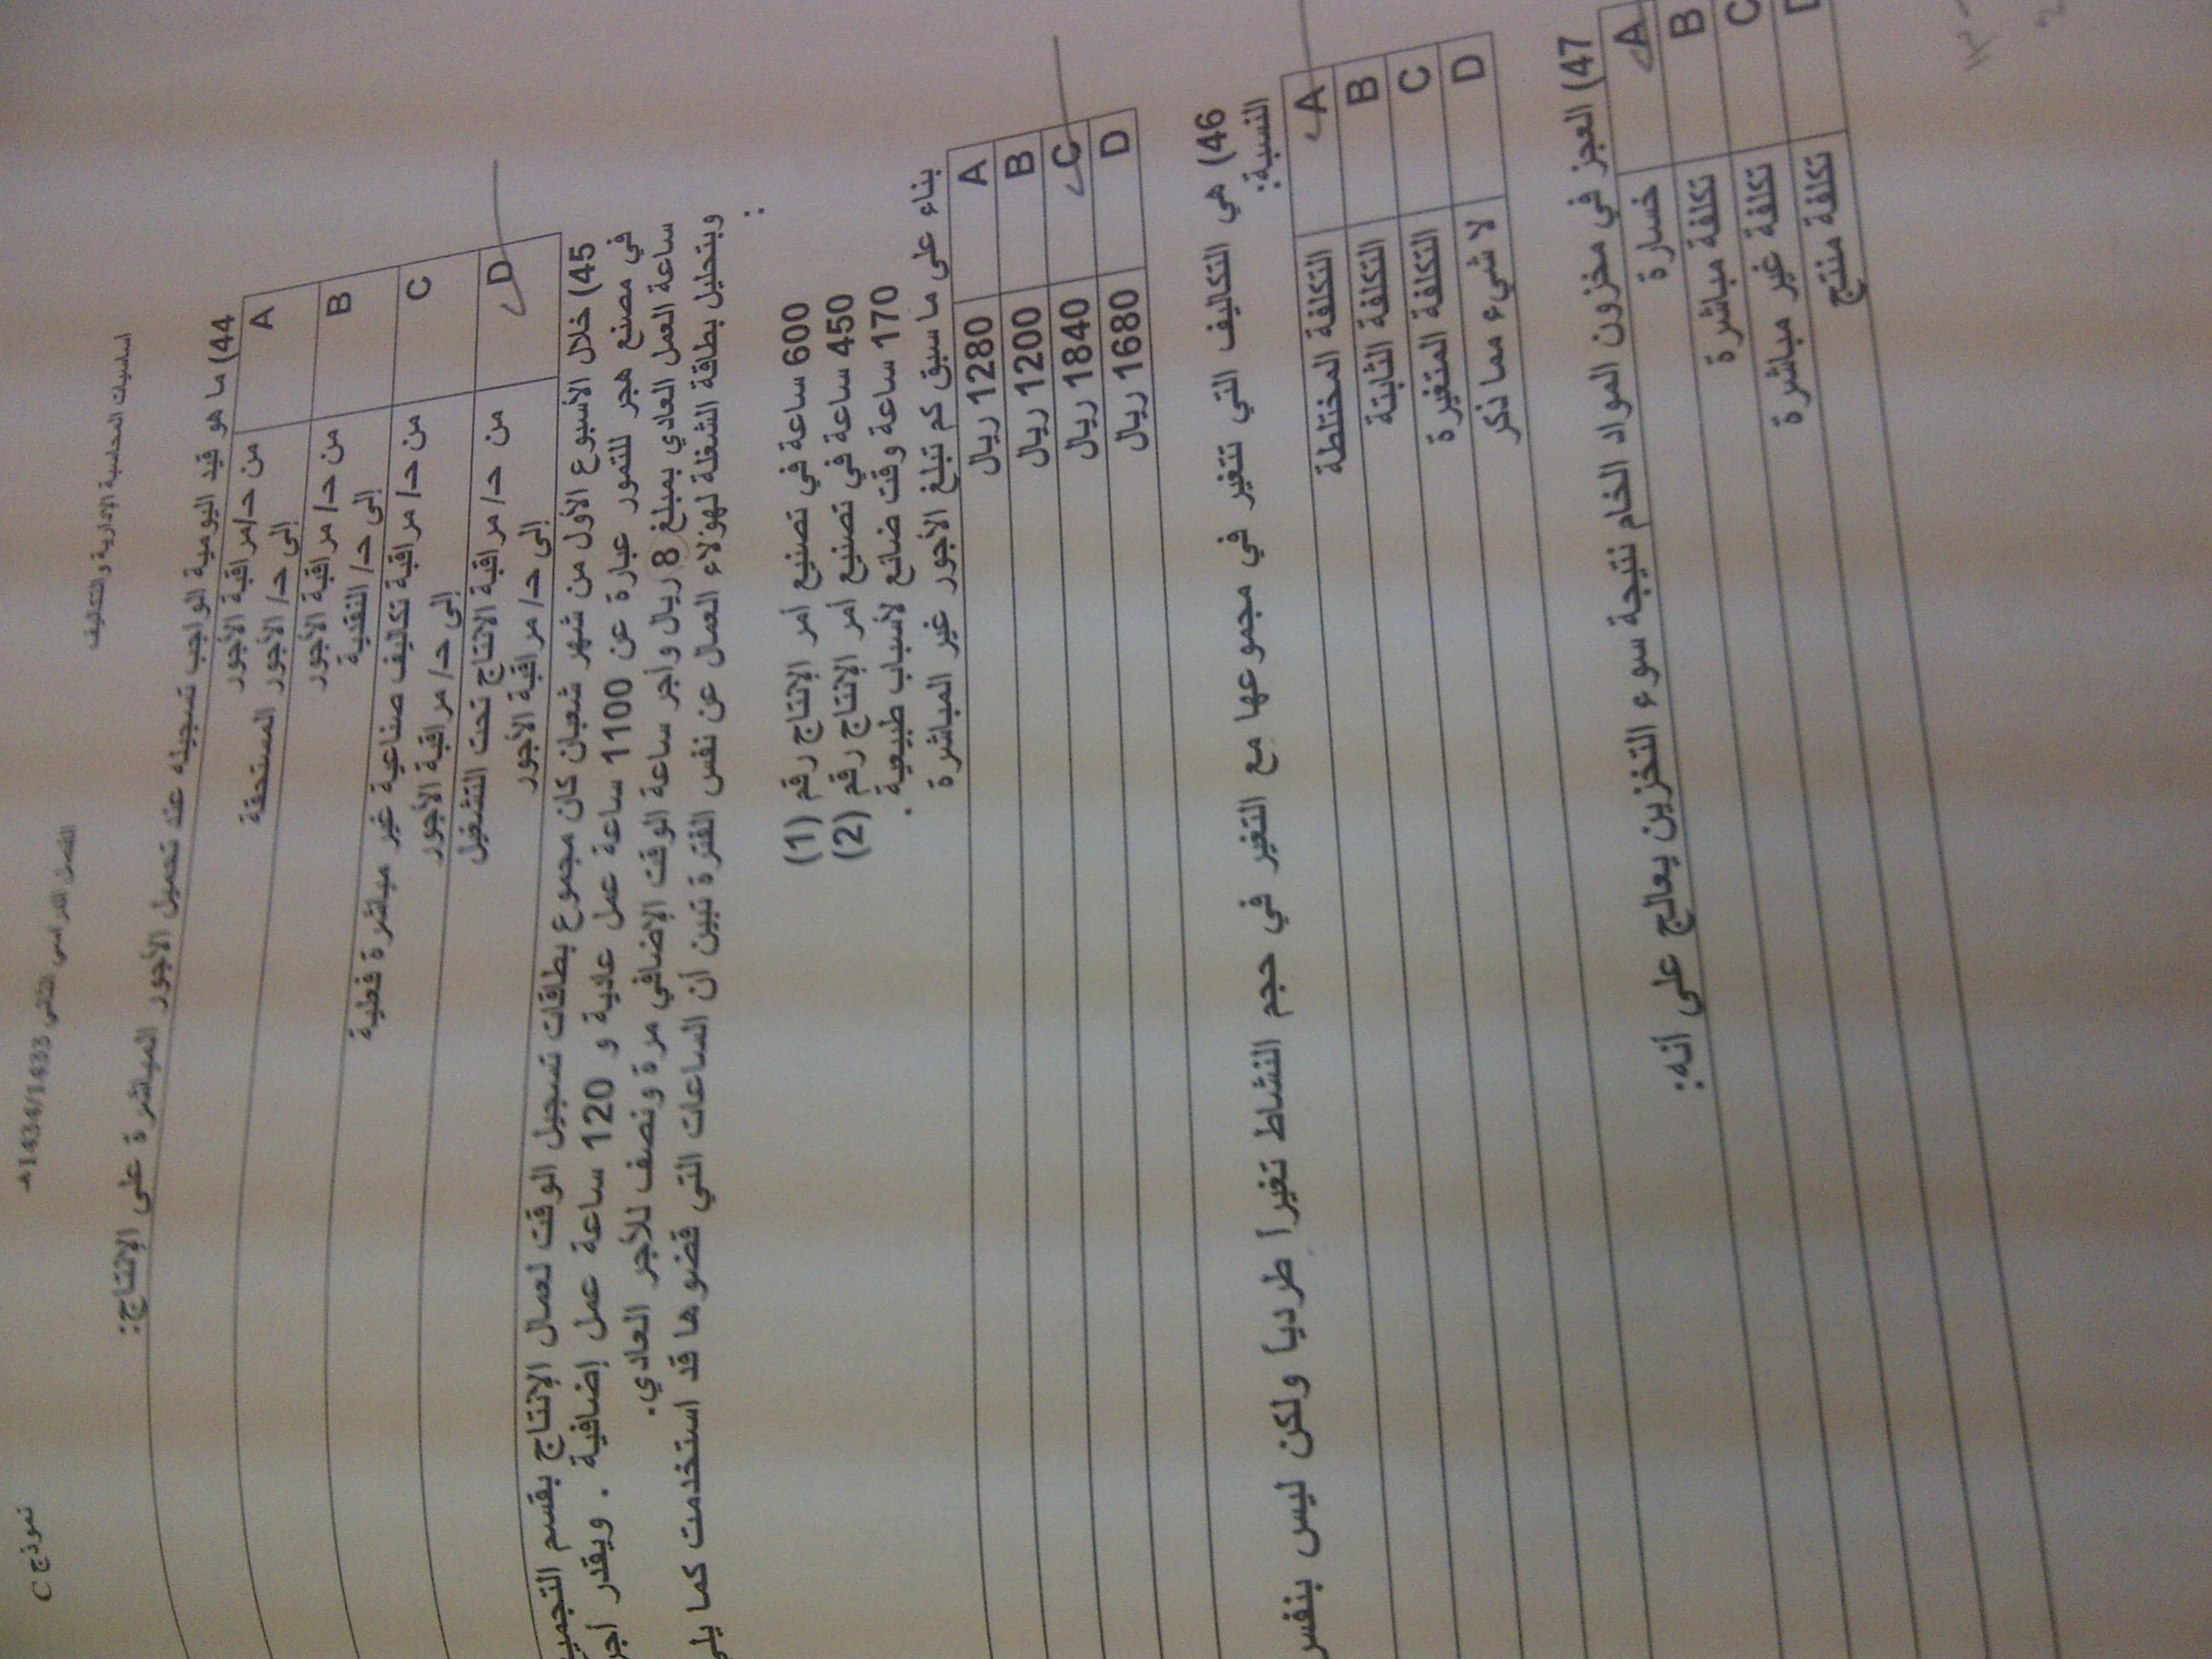 أساسيات المحاسبة الإدارية والتكاليف
الفصل الدراسي الثاني 1434/1433هـ
نموذج C
44) ما هو قيد اليومية الواجب تسجيله عند تحميل الأجور المباشرة على الإنتاج:
A من حـ/مراقبة الأجور
إلى حـ/ الأجور المستحقة
B من حـ/ مراقبة الأجور
إلى حـ/ النقدية
C من حـ/ مراقبة تكاليف صناعية غير مباشرة فعلية
إلى حـ/ مراقبة الأجور
D من حـ/ مراقبة الإنتاج تحت التشغيل
إلى حـ/ مراقبة الأجور
45) خلال الأسبوع الأول من شهر شعبان كان مجموع بطاقات تسجيل الوقت لعمال الإنتاج بقسم
في مصنع هجر للتمور عبارة عن 1100 ساعة عمل عادية و 120 ساعة عمل إضافية . ويقدر أجر
ساعة العمل العادي بمبلغ 8 ريال وأجر ساعة الوقت الإضافي مرة ونصف للأجر العادي.
وبتحليل بطاقة الشغلة لهؤلاء العمال عن نفس الفترة تبين أن الساعات التي قضوها قد استخدمت كما يلي
:
600 ساعة في تصنيع أمر الإنتاج رقم (1)
450 ساعة في تصنيع أمر الإنتاج رقم (2)
170 ساعة وقت ضائع لأسباب طبيعية .
بناء على ما سبق كم تبلغ الأجور غير المباشرة
A 1280 ريال
B 1200 ريال
C 1840 ريال
D 1680 ريال
46) هي التكاليف التي تتغير في مجموعها مع التغير في حجم النشاط تغيرا طرديا ولكن ليس بنفس
النسبة:
A التكلفة المختلطة
B التكلفة الثابتة
C التكلفة المتغيرة
D لا شيء مما ذكر
47) العجز في مخزون المواد الخام نتيجة سوء التخزين يعالج على أنه:
A خسارة
B تكلفة مباشرة
C تكلفة غير مباشرة
D تكلفة منتج